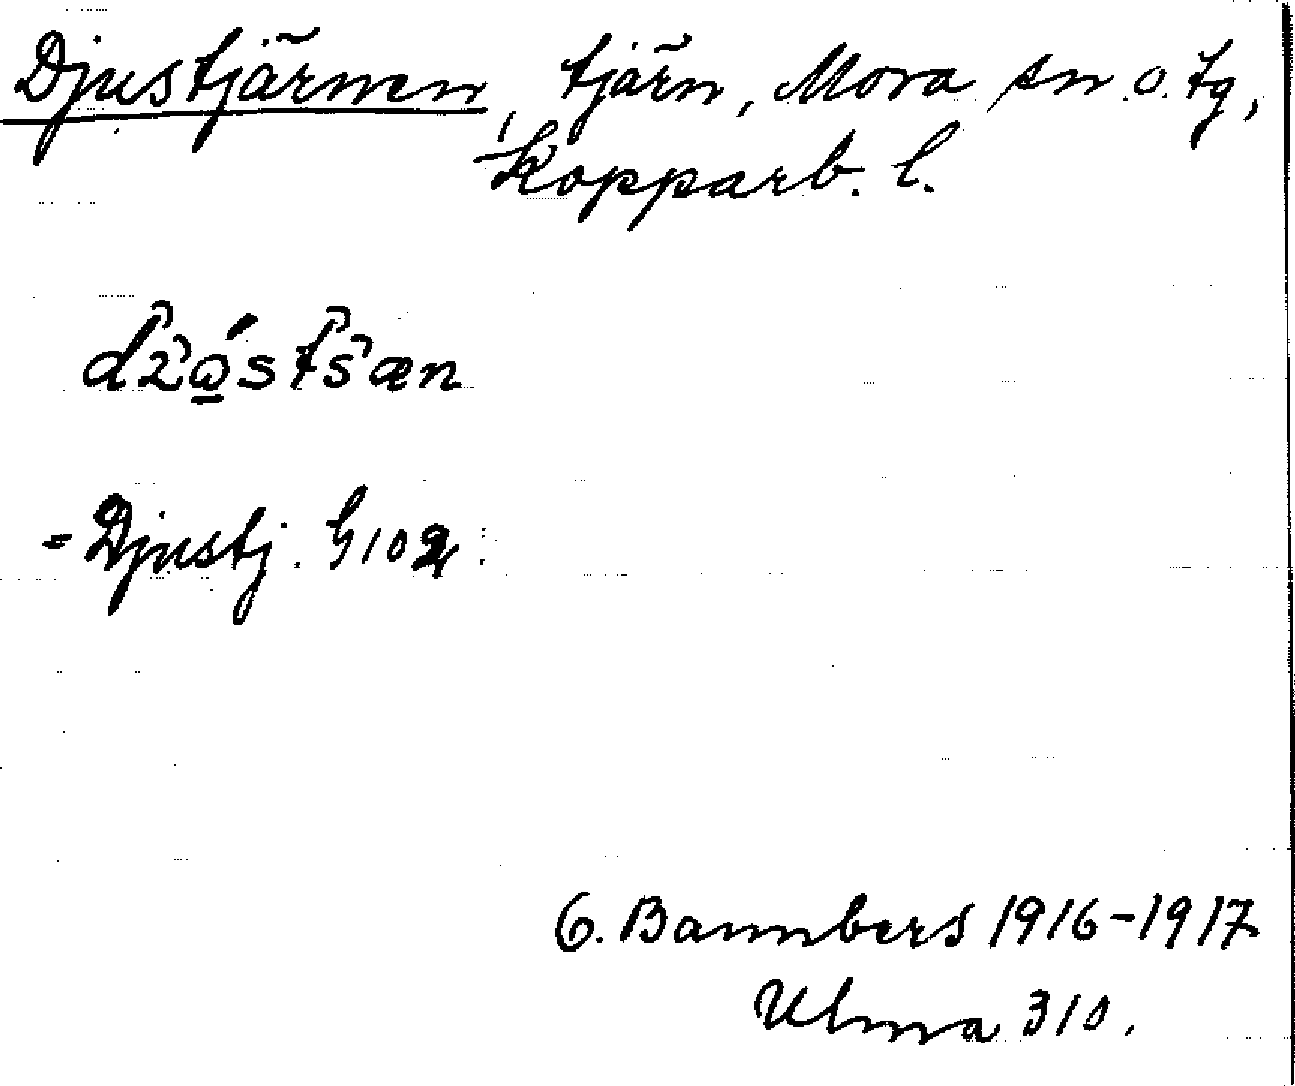 Djustjärnen, tjärn, Mora sn o. tg,
Kopparb. l.
= Djustj. G102
O. Bannbers 1916-1917
Ulma 310.